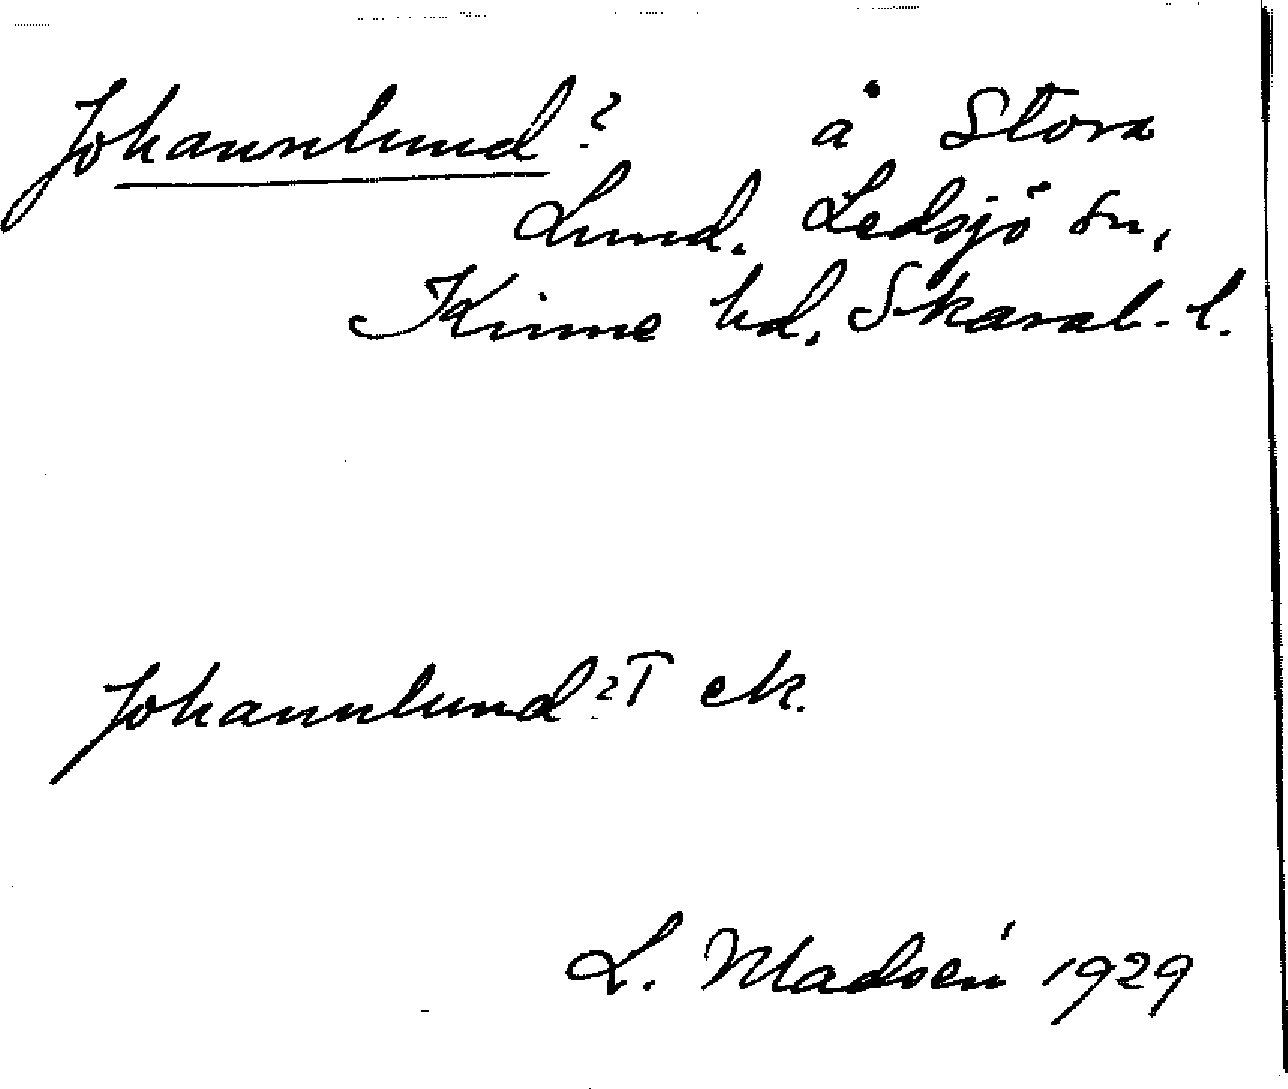 Johannlund? å Stora
Lund. Ledsjö sn,
Kinne hd, Skarab. l.
Johannlund? T ek.
L. Madsén 1929